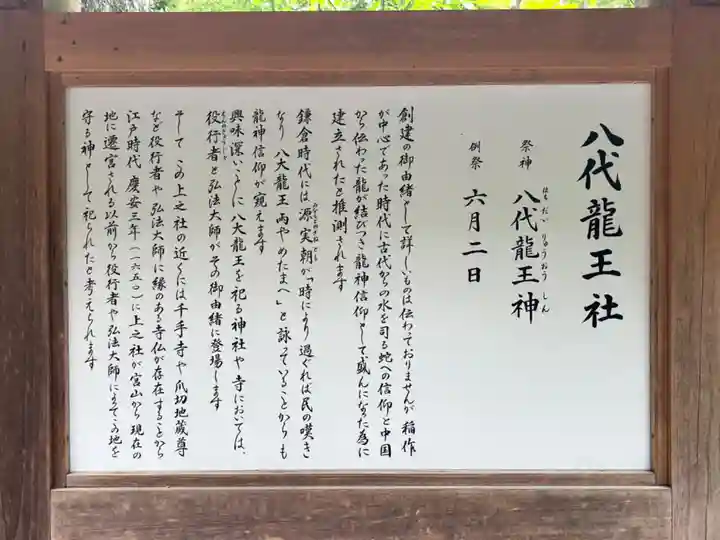 八代龍王社
祭神 八代龍王神
はちだいりゅうおうしん
例祭 六月二日
創建の御由緒として詳しいものは伝わっておりませんが 稲作
が中心であった時代に古代からの水を司る蛇への信仰と中国
から伝わった龍が結びつき龍神信仰として盛んになった為に
建立されたと推測されます
鎌倉時代には 源実朝が「時により過ぐれば民の嘆き
みなもとのさねとも
なり 八大龍王雨やめたまへ」と詠っていることからも
龍神信仰が窺えます
興味深いことに 八大龍王を祀る神社や寺においては、
役行者と弘法大師がその御由緒に登場します
えんのぎょうじゃ
そして この上之社の近くには千手寺や爪切地蔵尊
など役行者や弘法大師に縁のある寺仏が存在することから
江戸時代 慶安三年(一六五〇)に上之社が宮山から現在の
地に遷宮される以前から役行者や弘法大師によってこの地を
守る神として祀られたと考えられます